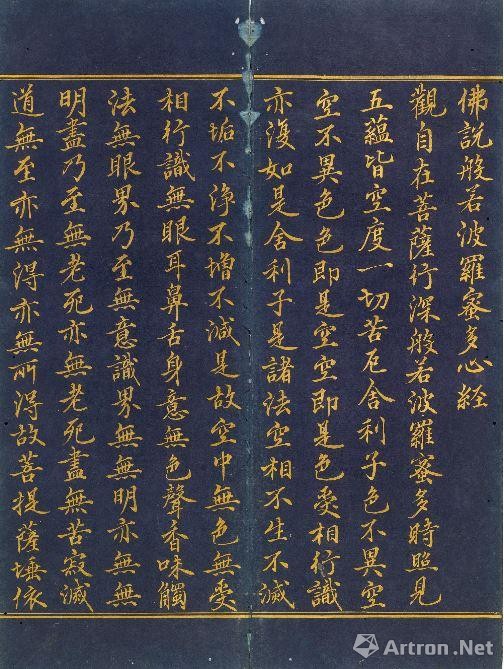 佛說般若波羅蜜多心經
觀自在菩薩行深般若波羅蜜多時照見
五蘊皆空度一切苦厄舍利子色不異空
空不異色色即是空空即是色受相行識
亦復如是舍利子是諸法空相不生不滅
不垢不淨不增不減是故空中無色無受
相行識無眼耳鼻舌身意無色聲香味觸
法無眼界乃至無意識界無無明亦無無
明盡乃至無老死亦無老死盡無苦寂滅
道無至亦無得亦無所得故菩提薩埵依
Artron.Net